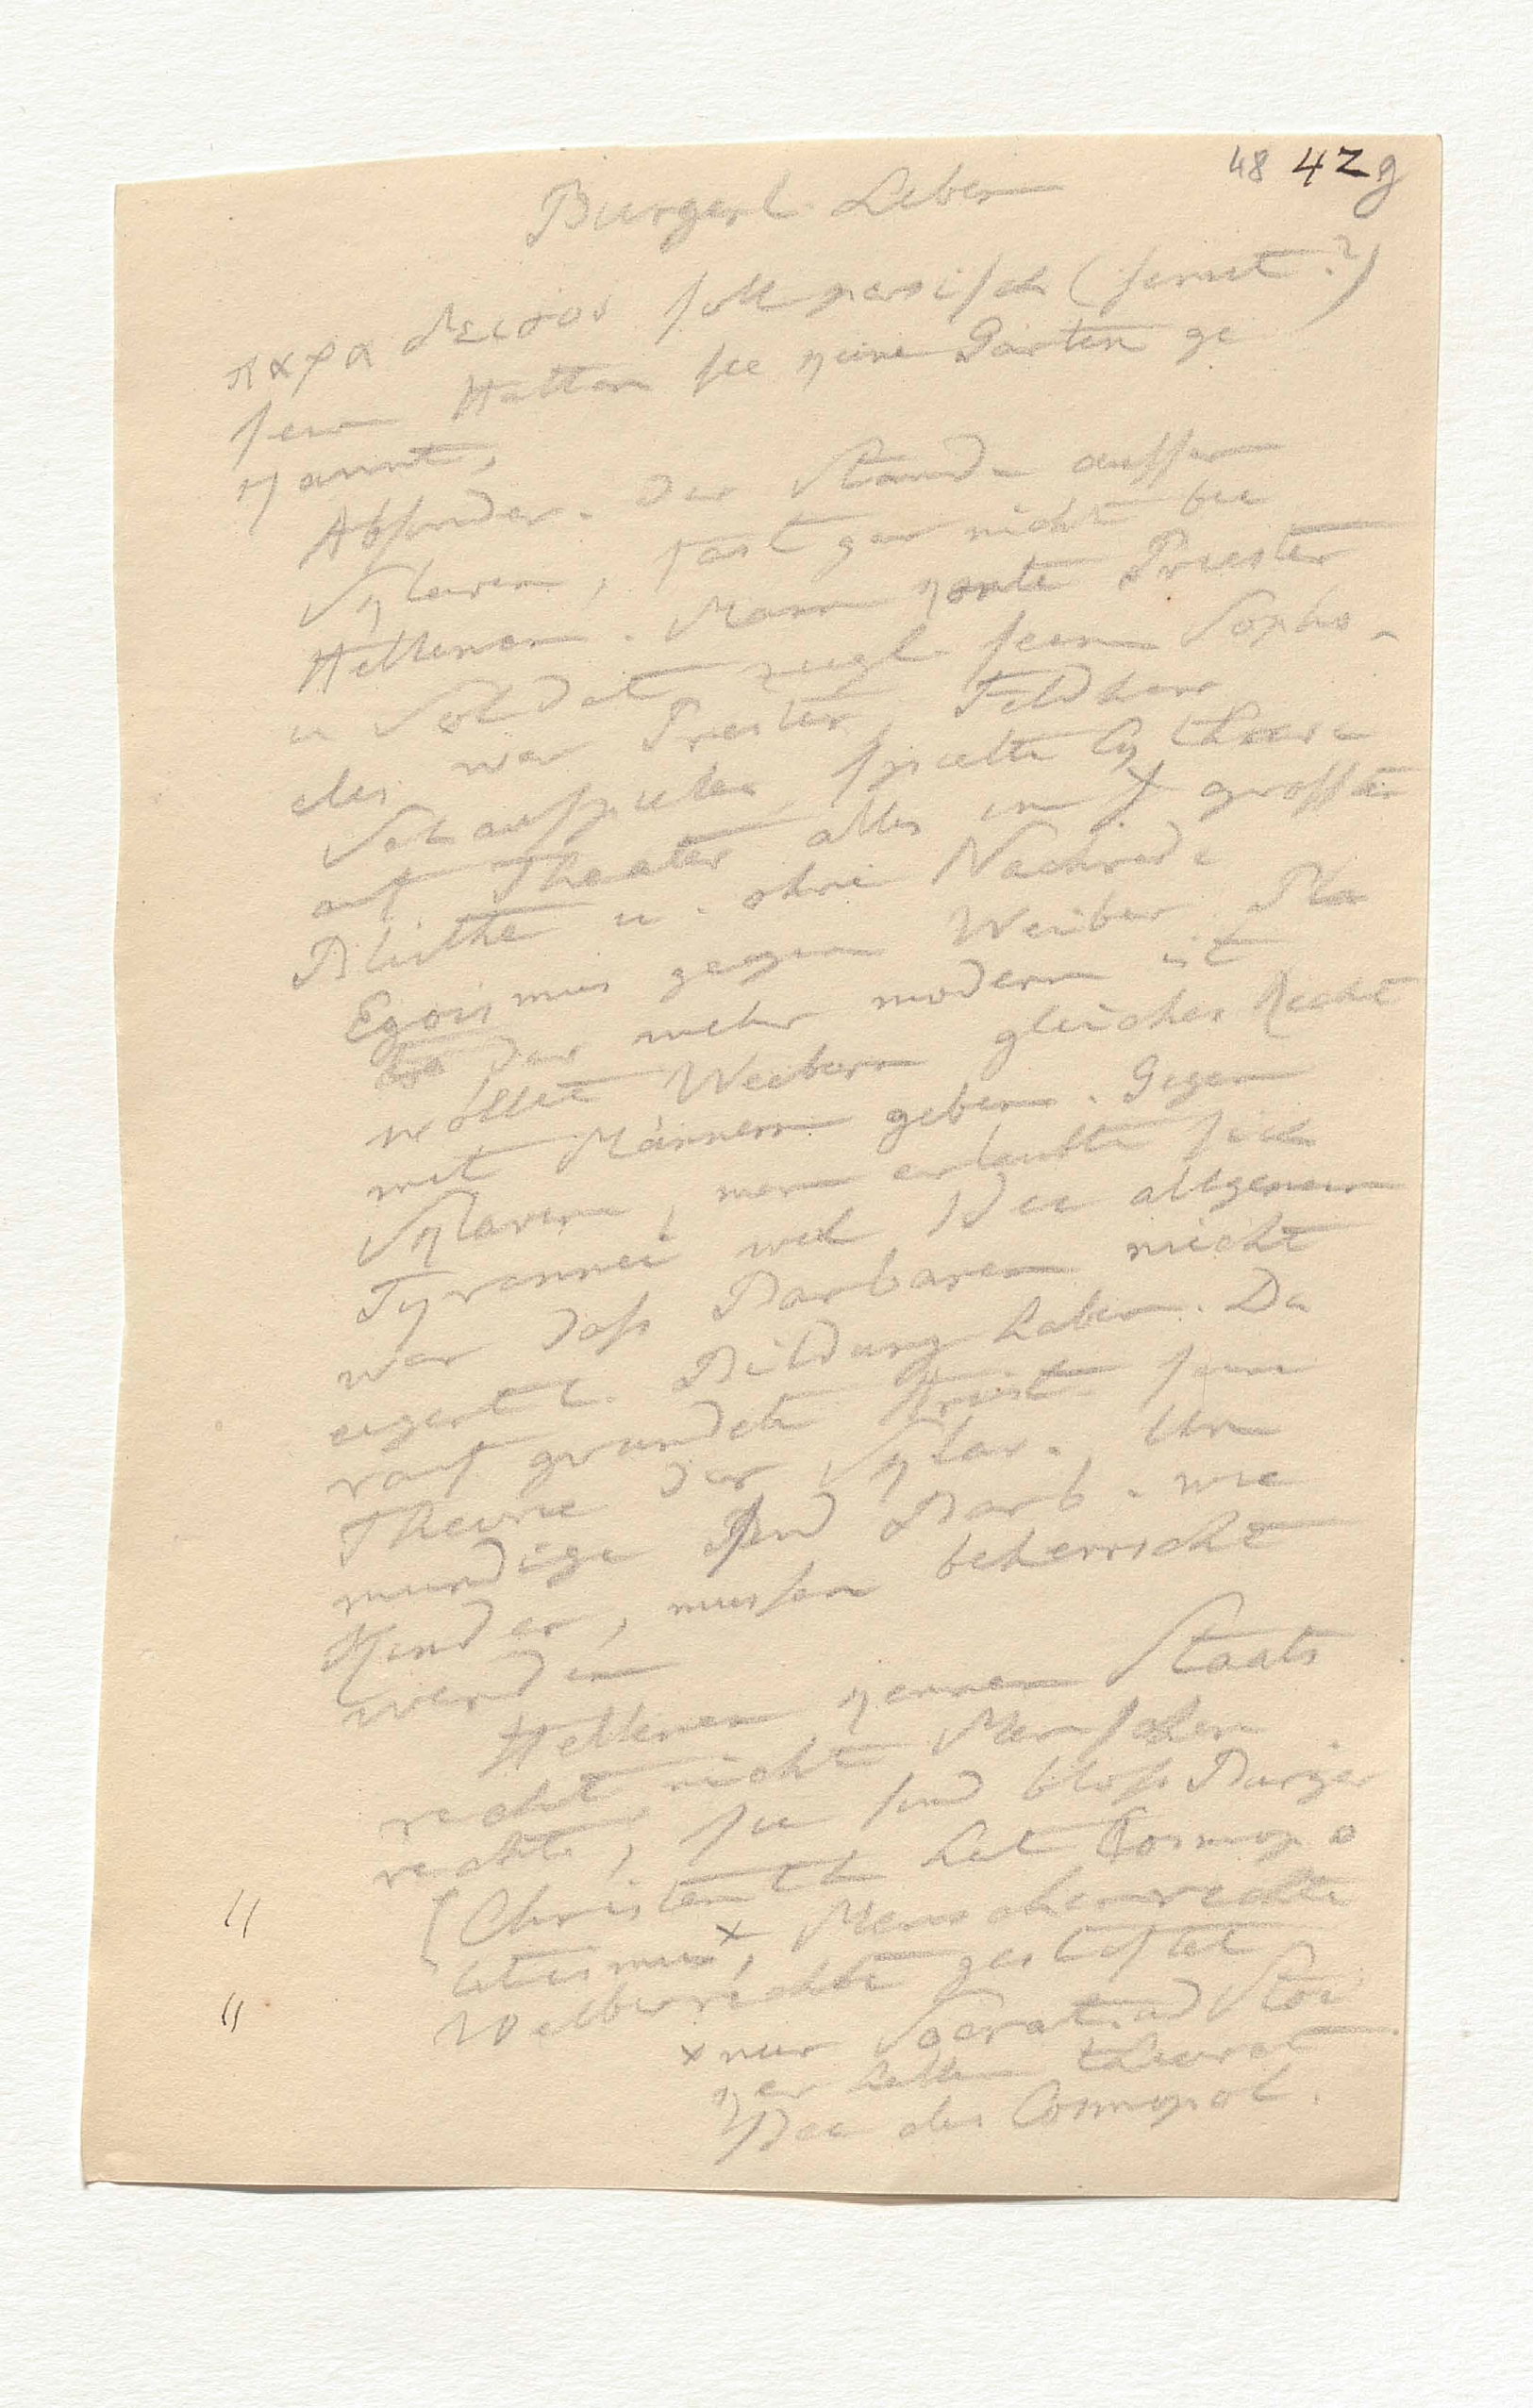 48 42g
Burgerl. Leben
παραδεισος soll persisch (semit?)
sein Hatten sie keine Garten ge
kannt,
Absonder. der Stande ausser
Sklaven, fast gar nicht bei
Hellenen. Man konte Priester
u Soldat zugl. sein Sopho-
cles war Priester, Feldherr
Schauspieler, spielte Cythare
auf Theater alles in grosster
Bluthe u. ohne Nachrede
Egoismus gegen Weiber. Pla
der mehr modern ist
wollte Weibern gleiches Recht
mit Männern geben. Gegen
Sklaven, man erlaubte sich
Tyrannei weil Idee allgemein
war dass Barbaren nicht
eigentl. Bildung haben. Da
rauf grundete Arist. seine
Theorie der Sklav. Un
mundige sind Barb. wie
Kinder, mussen beherrscht
werden
Hellenen kennen Staats
recht nicht Menschen
rechte, sie sind bloss Burger
[Christenth hat Kosmopo
litismus×, Menschenrechte
Volkerrechte gestiftet
× nur Socrat. und Stoi
ker hatten theoret
Idee des Cosmopol.